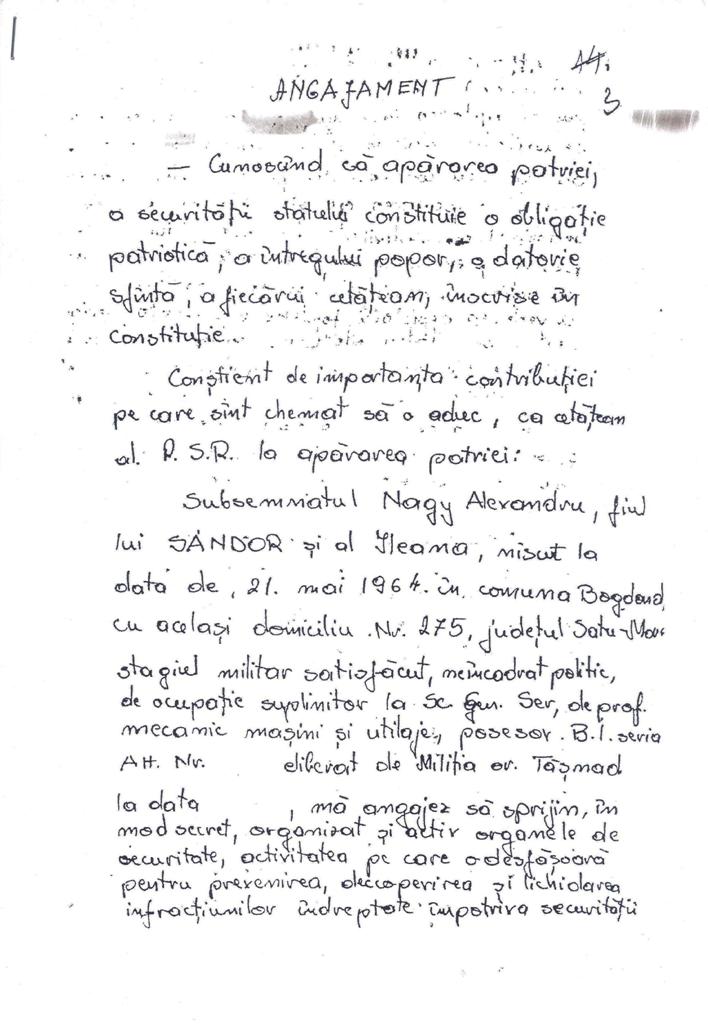 14.
ANGAJAMENT
3
— Cunoscînd că, apărarea patriei,
a securității statului constituie o obligație
patriotică, a întregului popor, o datorie
sfîntă, a fiecărui cetățean, înscrise în
constituție.
Conștient de importanța contribuției
pe care sînt chemat să o aduc, ca cetățean
al R.S.R. la apărarea patriei:
Subsemnatul Nagy Alexandru, fiul
lui SÁNDOR și al Ileana, născut la
data de, 21. mai 1964. în comuna Bogdand,
cu același domiciliu Nr. 275, județul Satu-Mare
stagiul militar satisfăcut, neîncadrat politic,
de ocupație suplinitor la Sc. Gen. Ser, de prof.
mecanic mașini și utilaje, posesor B.I. seria
AH. Nr. eliberat de Miliția or. Tășnad
la data , mă angajez să sprijin, în
mod secret, organizat și activ organele de
securitate, activitatea pe care o desfășoară
pentru prevenirea, descoperirea și lichidarea
infracțiunilor îndreptate împotriva securității